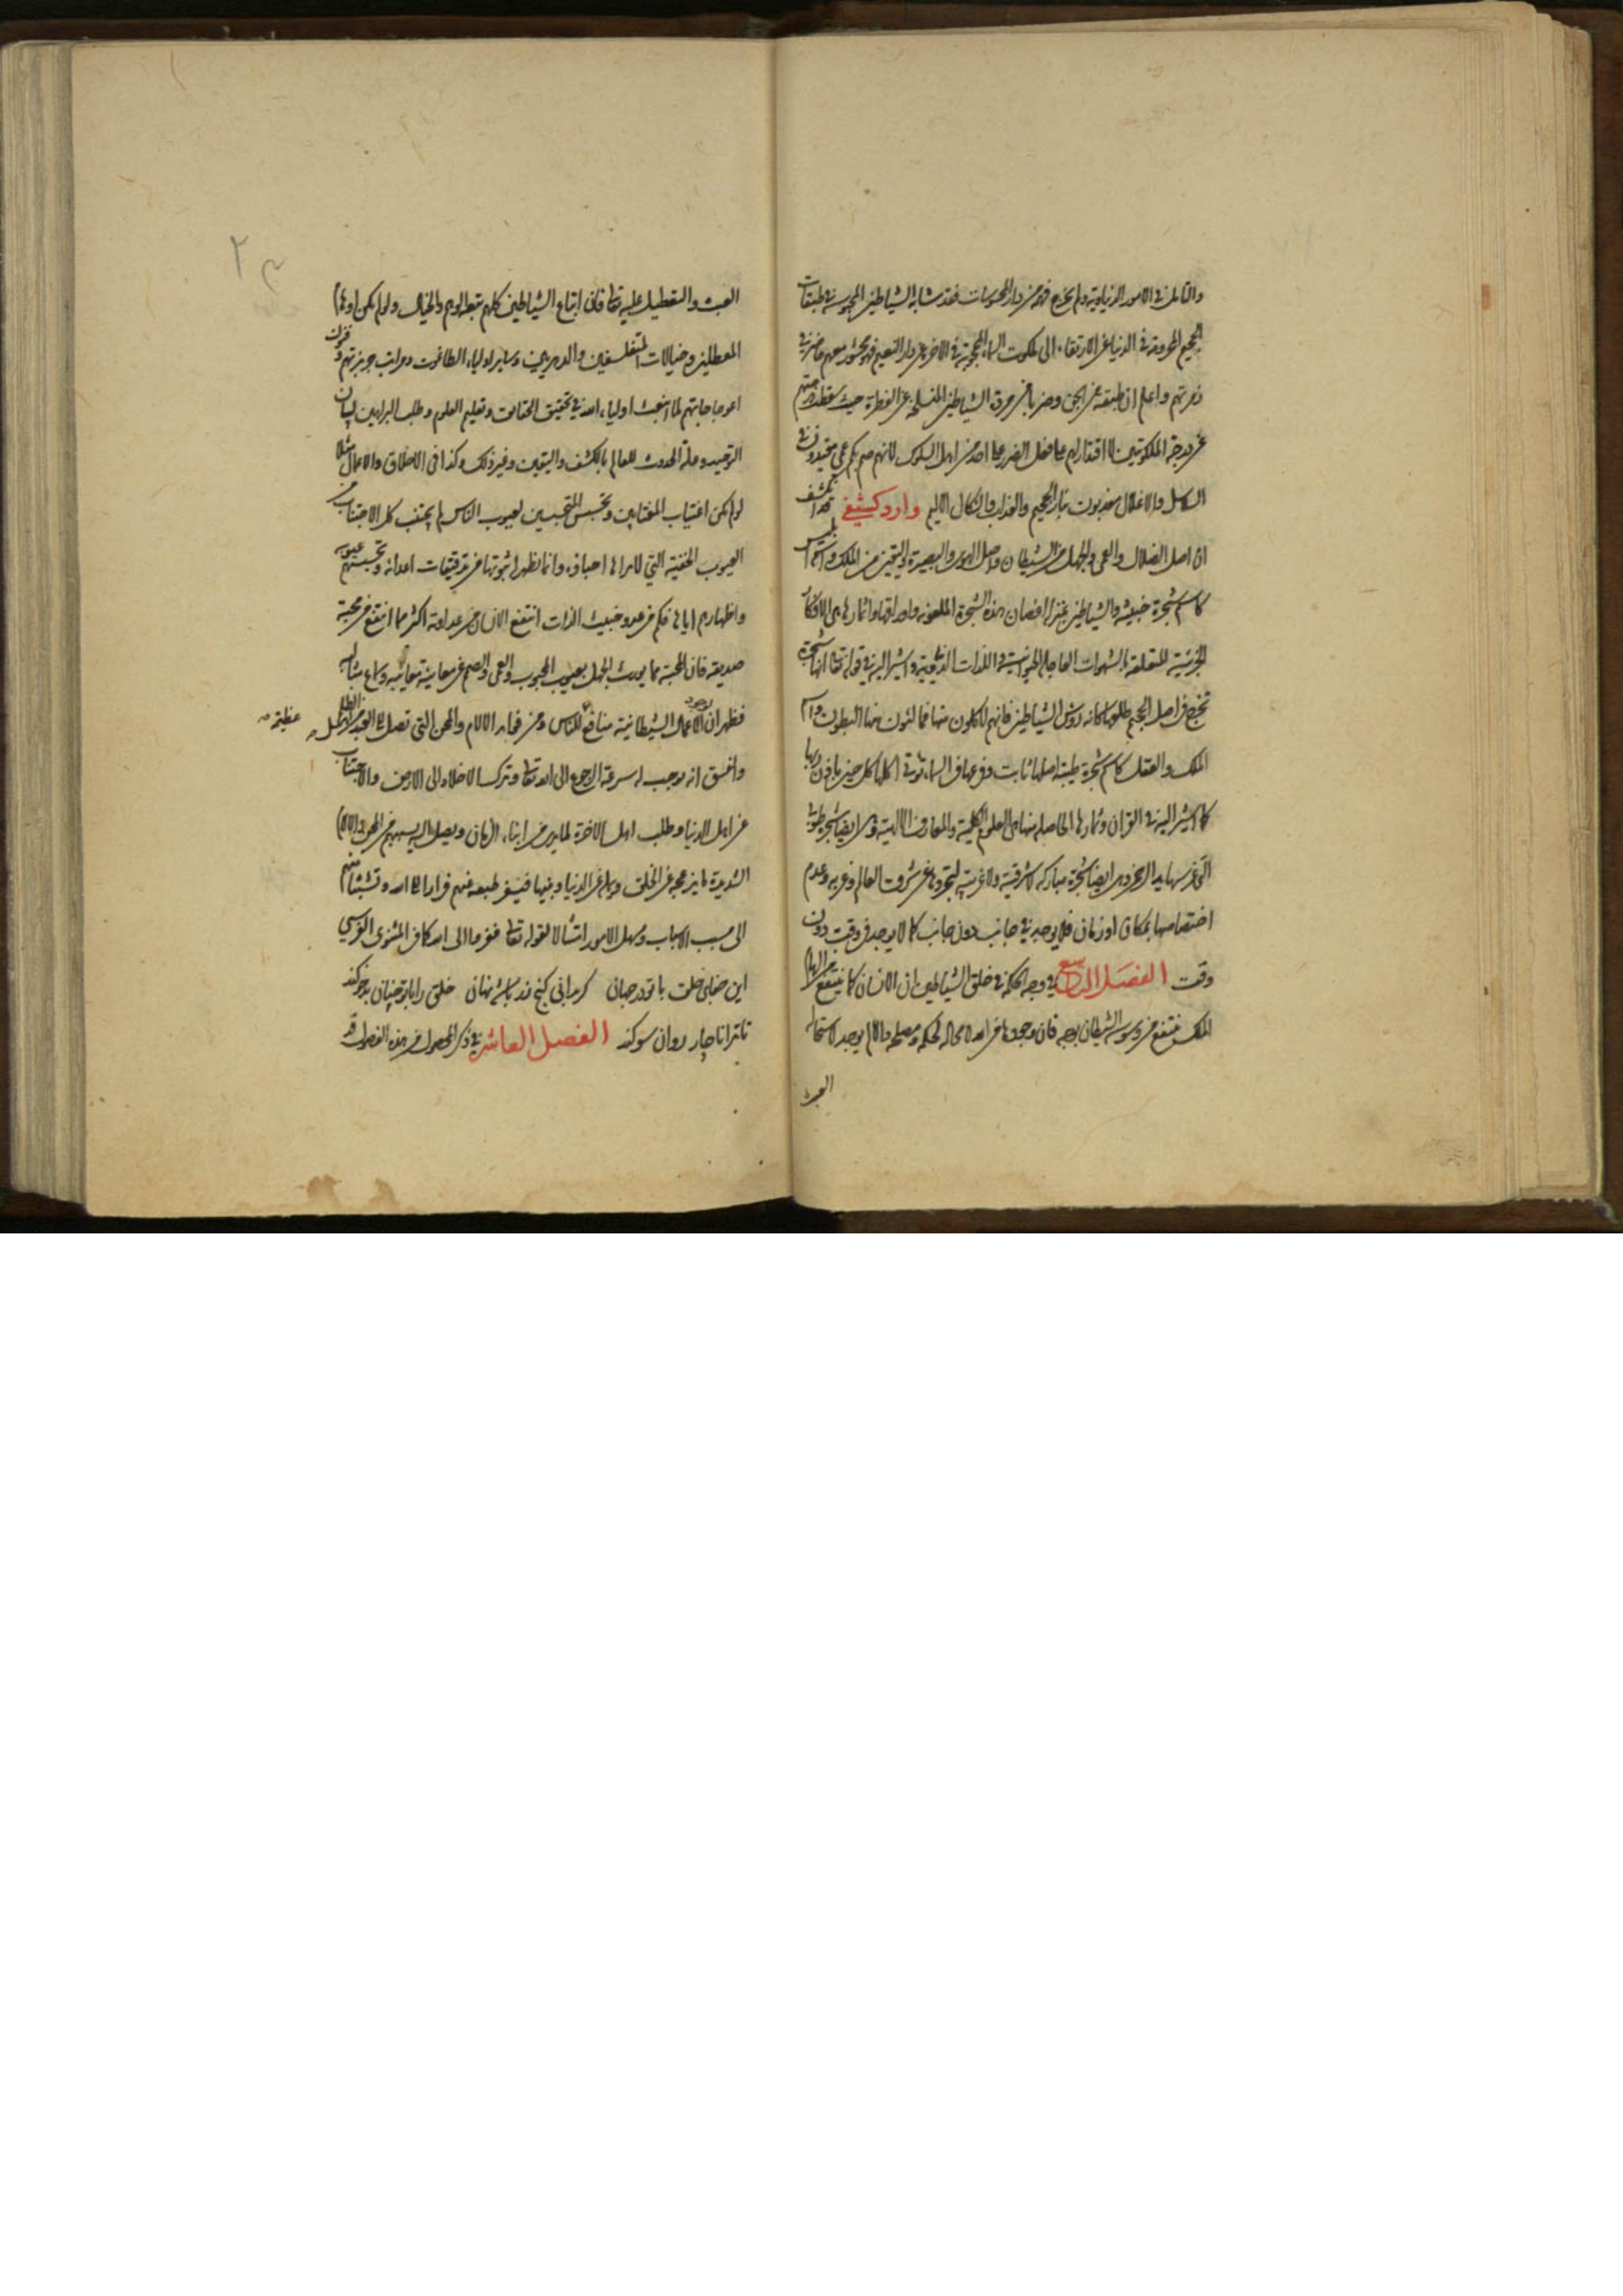 والتامل في الامور الدنياوية ولم يخرج فهمه من دار المحسوسات فقد شابه الشياطين المحبوسة في طبقات
الجحيم المحرومة في الدنيا عن الارتقاء الى ملكوت السماء المحجوبة في الاخرة عن دار النعيم فهو محشور معهم
زمرتهم واعلم ان طبقة من الجن وضرباً من مردة الشياطين المنسلخة عن الفطرة حيث سقطت
عن درجة الملكوتيين لا اقتدار لهم على فعل الضرر على احد من اهل السلوك لانهم صم بكم عمي مقيدون في
السلاسل والاغلال معذبون بنار الجحيم والعذاب والنكال الاليم وارد كشفي قد انكشف
ان اصل الضلال والعمى والجهل من الشيطان واصل الهدى والبصيرة واليقين من الملك
كل شجرة خبيثة والشياطين بمنزلة اغصان هذه الشجرة الملعونة واوراقها واثمارها هي الافكار
الجزئية المتعلقة بالشهوات العاجلة الحيوانية واللذات الدنيوية واشير اليه في قوله تعالى انها شجرة
تخرج في اصل الجحيم طلعها كانه رؤس الشياطين فانهم لاكلون منها فمالئون منها البطون
الملك والعقل كشجرة طيبة اصلها ثابت وفرعها في السماء تؤتي اكلها كل حين باذن ربها
كما اشير اليه في القران وثمارها الحاصلة منها هي العلوم الكلية والمعارف الالهية وهي ايضا شجرة طوبى
التي غرسها يد الرحمن وهي ايضا شجرة مباركة لا شرقية ولا غربية لتجردها عن شرق العالم وغربه وعدم
اختصاصها بمكان او زمان فلا يوجد في جانب دون جانب كما لا يوجد في وقت دون
وقت الفصل التاسع في وجه الحكمة في خلق الشياطين ان الانسان كما ينتفع من الهام
الملك ينتفع من وسوسة الشيطان بوجه فان وجودها من الله لا محالة لحكمة ومصلحة والا لم يوجد لاستحالة
العبث
العبث والتعطيل عليه تعالى فان اتباع الشياطين كلهم تبعة الوهم والخيال ولو لم يكن اوهام
المعطلين وخيالات المتفلسفين والدهريين وساير اولياء الطاغوت ومراتب جربزتهم وفنون
اعوجاجاتهم لما انبعث اولياء الله في تحقيق الحقايق وتعليم العلوم وطلب البراهين لبيان
التوحيد وعلة الحدوث للعالم بالكشف واليقين وغير ذلك وكذا في الاخلاق والاعمال مثلا
لو لم يكن اغتياب المغتابين وتجسس المتجسسين لعيوب الناس لم يجتنب كل الاجتناب من
العيوب الخفية التي لا يراها احباؤه وانما يظهر له ثبوتها من تدقيقات اعدائه وتجسسهم عيوبه
واظهارهم اياها فكم من عدو خبيث الذات انتفع الانسان من عداوته اكثر مما انتفع من محبة
صديقه فان المحبة مما يورث الجهل بعيوب المحبوب والعمى والصم عن معاينة معائبه وسماع مثالبه
فظهر ان لوجود الاعمال الشيطانية منافع للناس ومن فوايد الالام والمحن التي تصل الى العبد من اهل الظلم
عظيمة
والفسق انه يوجب له سرعة الرجوع الى الله تعالى وترك الاخلاد الى الارض والاجتناب
عن اهل الدنيا وطلب اهل الاخرة لما يرى من ابناء الزمان ويصل اليه بسببهم من المحن والالام
الشديدة ما يزعجه عن الخلق وعن الدنيا وبنيها فينفر طبعه منهم فرارا الى الله وتشبثا منهم
الى مسبب الاسباب ومسهل الامور امتثالا لقوله تعالى ففروا الى الله كما في المثنوي الفارسي
اين جفاى خلق با تو در جهان كر بدانى كنج زر باشد نهان خلق را با تو چنان بدخو كند
تا ترا ناچار رو آن سو كند الفصل العاشر في ذكر المحصول من هذه الفصول قد